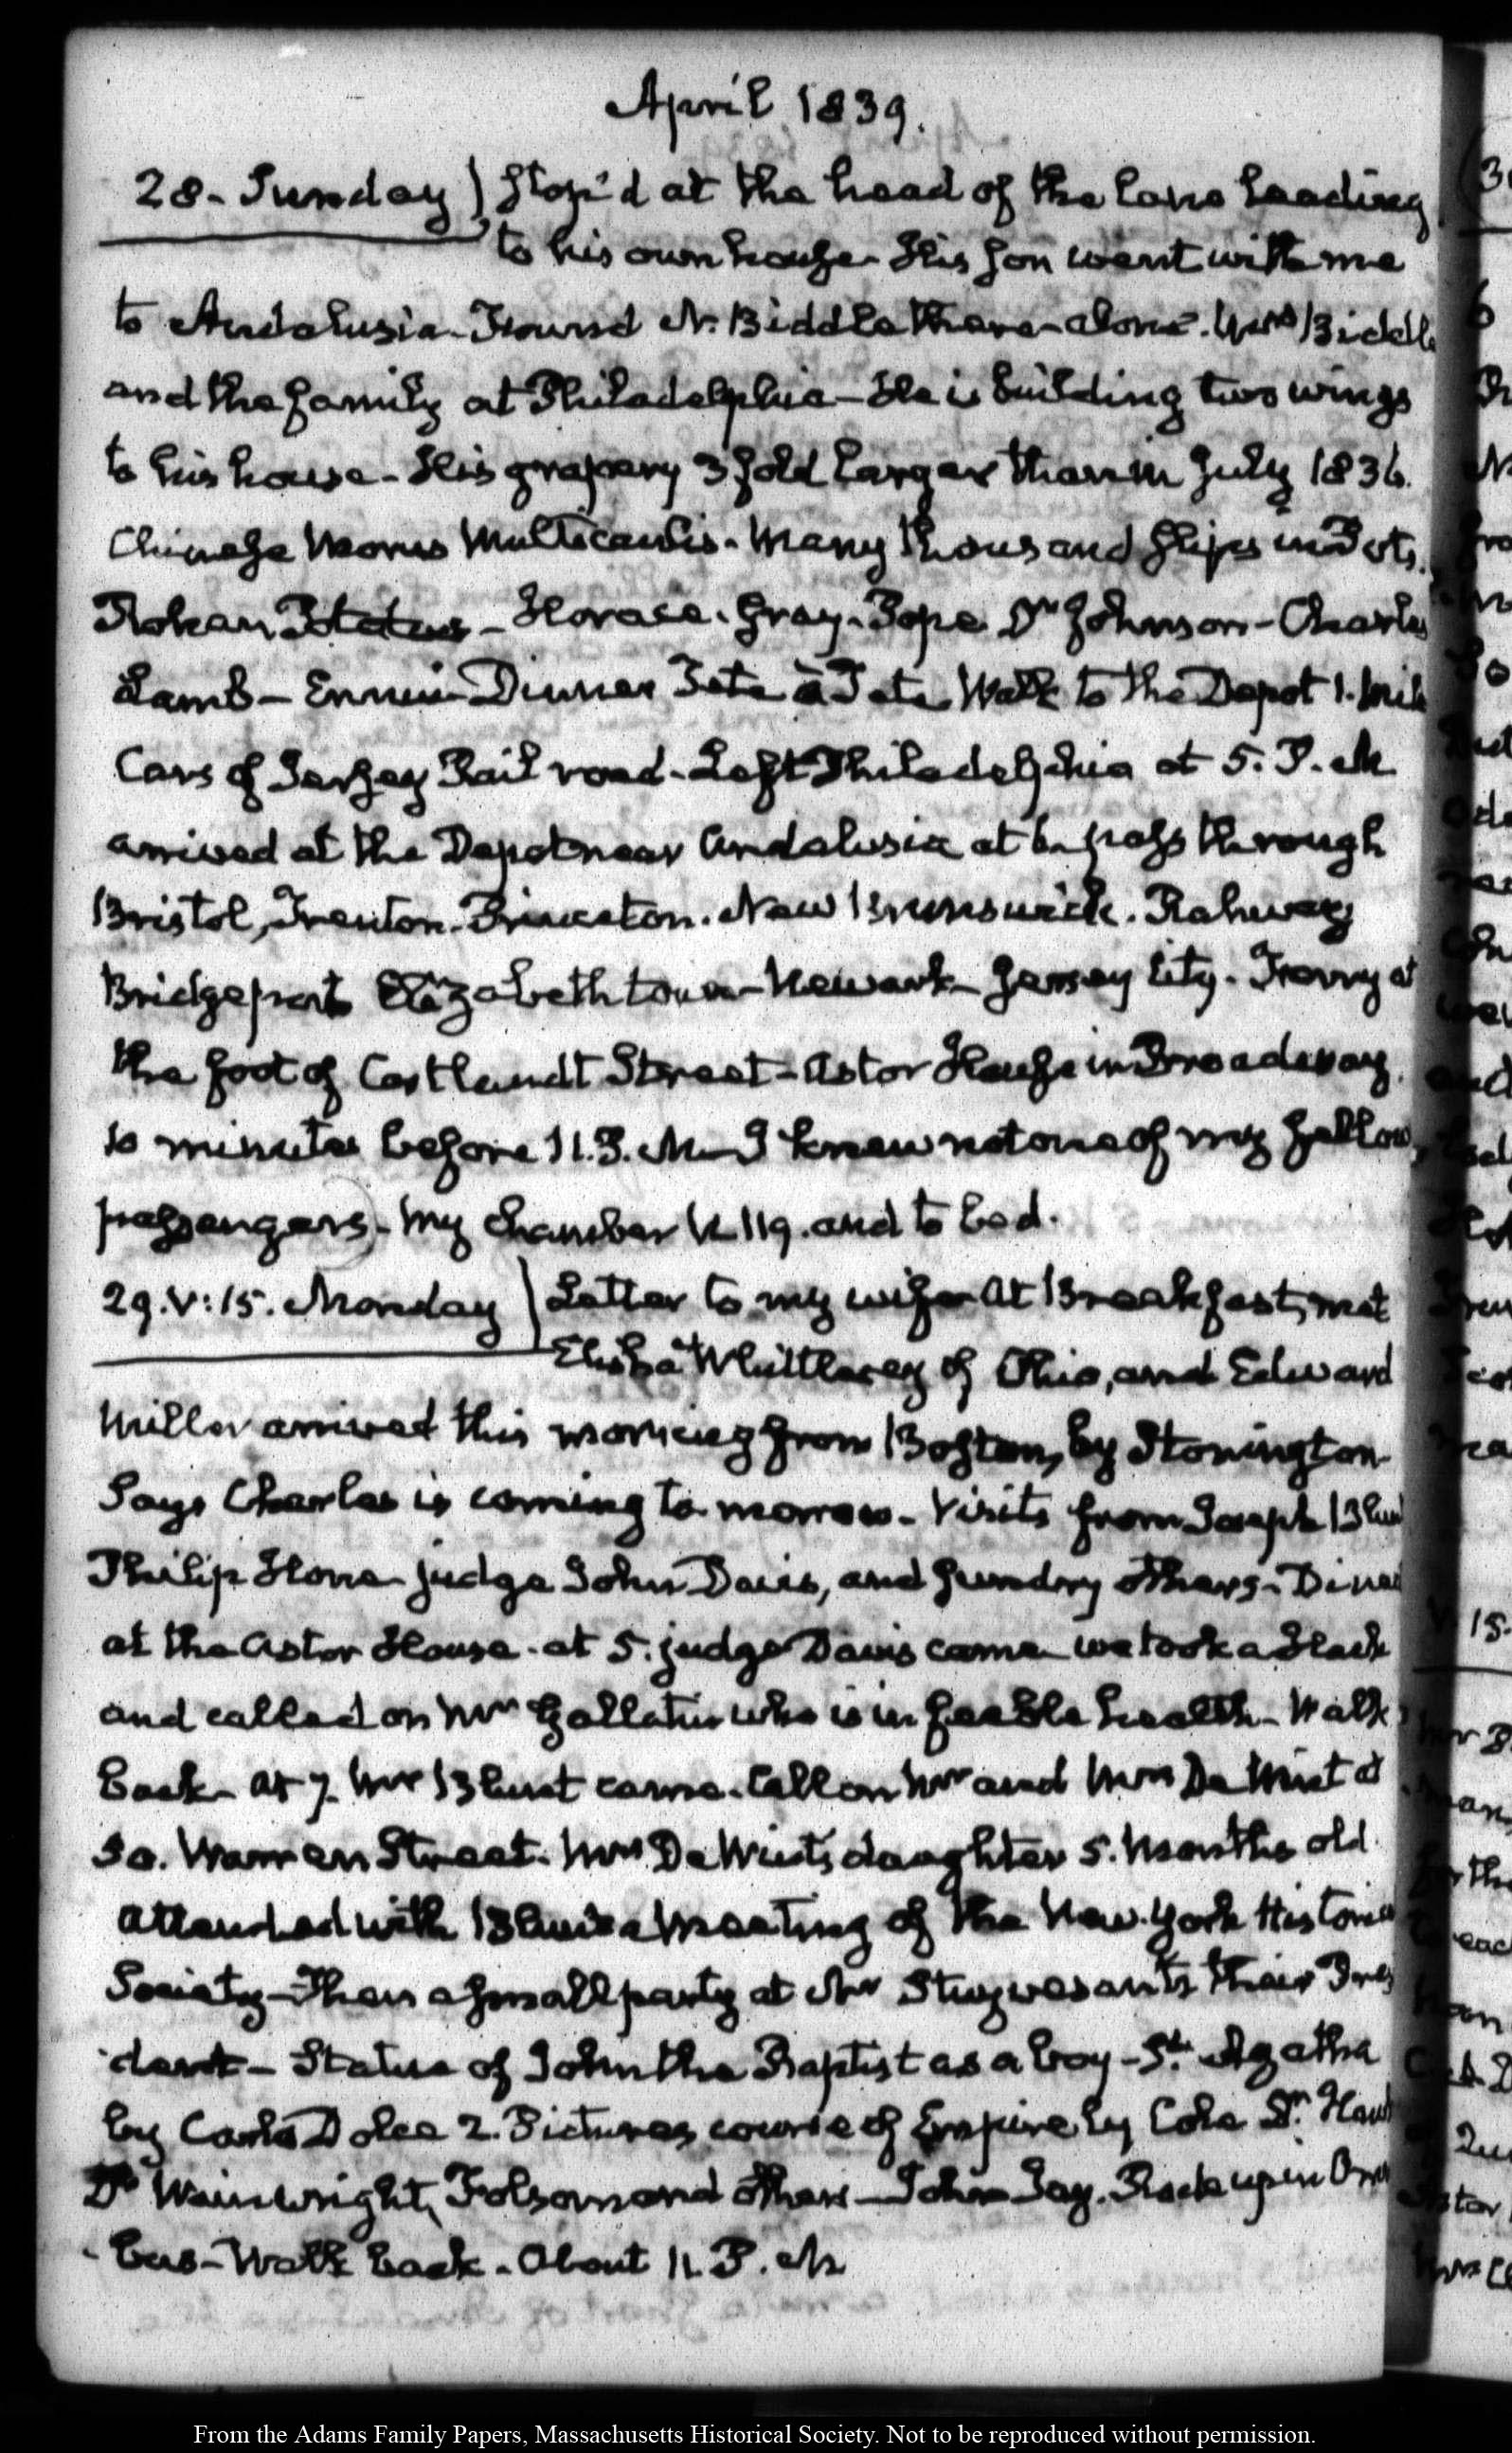 April 1839.
28. Sunday) stop'd at the head of the lane leading
to his own house. His son went with me
to Andalusia. Found N. Biddle there alone. Mrs Biddle
and the family at Philadelphia. He is building two wings
to his house. His grapery 3 fold larger than in July 1836.
Chinese Morus Multicaulis. Many thousand slips in Pots.
Rohan Potatoes. Horace. Gray. Pope Dr Johnson. Charles
Lamb. Ennui Dinner Tete à Tete. Walk to the Depot 1. Mile
Cars of Jersey Rail road. Left Philadelphia at 5. P.M.
arrived at the Depot near Andalusia at 6. pass through
Bristol, Trenton. Princeton. New Brunswick. Rahway
Bridgeport Elizabethtown. Newark. Jersey City. Ferry at
the foot of Cortlandt Street. Astor House in Broadway
10 minutes before 11. P.M. I knew not one of my fellow
passengers. My chamber N. 119. and to bed.
29. V:15. Monday) Letter to my wife. At Breakfast, met
Elisha Whittlesey of Ohio, and Edward
Miller arrived this morning from Boston, by Stonington
Says Charles is coming to morrow. Visits from Joseph Blunt
Philip Hone judge John Davis, and sundry others. Dined
at the Astor House. at 5. judge Davis came we took a Hack
and called on Mr Gallatin who is in feeble health. Walk
back. At 7. Mr Blunt came. Call on Mr and Mrs De Wint at
30. Warren Street. Mrs De Wint's daughter 5. Months old
attended with Blunt a Meeting of the New-York Historical
Society. Then a small party at Mr Stuyvesant's their Presi
dent. Statue of John the Baptist as a boy. St. Agatha
by Carlo Dolce 2. Pictures course of Empire by Cole Dr.
Dr Wainwright, Folsom and others. John Jay. up in Omni
bus. Walk back. About 11. P.M.
From the Adams Family Papers, Massachusetts Historical Society. Not to be reproduced without permission.